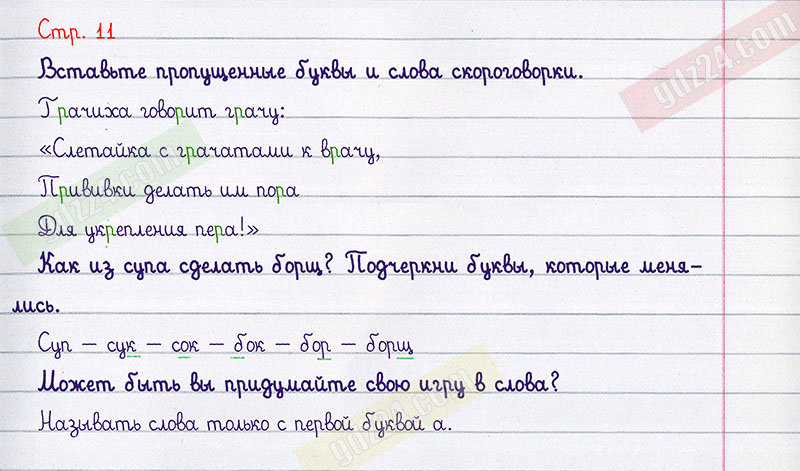 Стр. 11
gdz24.com
Вставьте пропущенные буквы и слова скороговорки.
Грачиха говорит грачу:
«Слетайка с грачатами к врачу,
Прививки делать им пора
gdz24.com
Для укрепления пера!»
Как из супа сделать борщ? Подчеркни буквы, которые меня-
лись.
Суп – сук – сок – бок – бор – борщ
Может быть вы придумайте свою игру в слова?
gdz24.com
Называть слова только с первой буквой а.